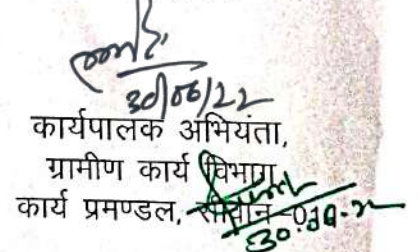 30/06/22
कार्यपालक अभियंता,
ग्रामीण कार्य विभाग
कार्य प्रमण्डल, सीवान-0